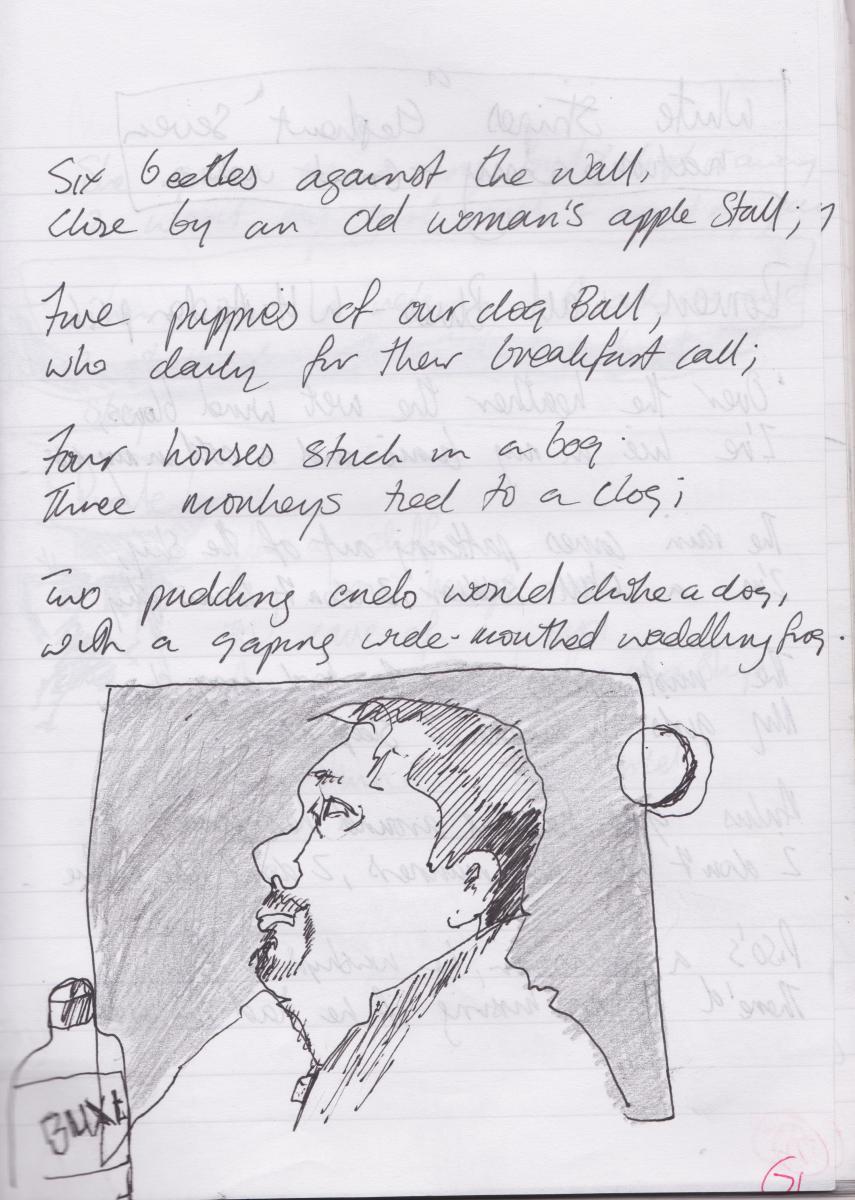 Six beetles against the wall,
Close by an old woman's apple stall;
Five puppies of our dog Ball,
who daily for their breakfast call;
Four horses stuck in a bog.
Three monkeys tied to a clog;
Two pudding ends would choke a dog,
with a gaping wide-mouthed waddling frog.